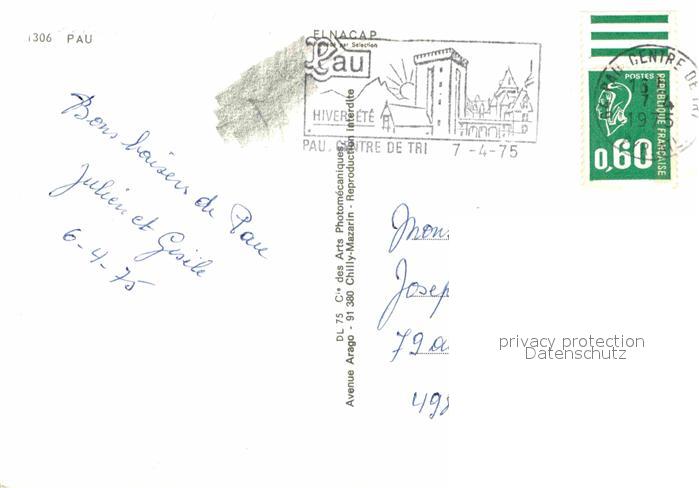 1306 PAU
ELNACAP
Pau
HIVER ÉTÉ
PAU. CENTRE DE TRI 7-4-75
PAU CENTRE DE TRI
7 4
1975
POSTES
RÉPUBLIQUE FRANÇAISE
0,60
Bons baisers de Pau
Julien et Gisèle
6-4-75
DL 75 Cie des Arts Photomécaniques
Avenue Arago - 91 380 Chilly-Mazarin - Reproduction interdite
Mons
Josep
79 a
49
privacy protection
Datenschutz